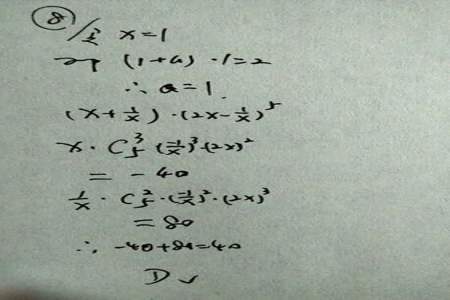 ⑧
令 x=1
则 (1+a)·1=2
∴ a=1
(x+1/x)·(2x-1/x)^5
x·C_5^3(-1/x)^3·(2x)^2
=-40
1/x·C_5^2·(-1/x)^2·(2x)^3
=80
∴ -40+80=40
D ✓